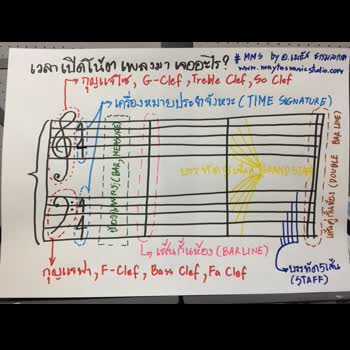 เวลาเปิดโน้ตเพลงมา เจออะไร?
# MMS by อ.เมธัส ธรรมลงกรต
www.maytusmusicstudio.com
กุญแจโซ, G-Clef, Treble Clef, So Clef
เครื่องหมายประจำจังหวะ (TIME SIGNATURE)
4
4
ห้องเพลง (BAR, MEASURE)
บรรทัด GRAND STAFF
เส้นกั้นห้อง (DOUBLE BAR LINE)
4
4
เส้นกั้นห้อง (BARLINE)
กุญแจฟา, F-Clef, Bass Clef, Fa Clef
บรรทัด 5 เส้น
(STAFF)